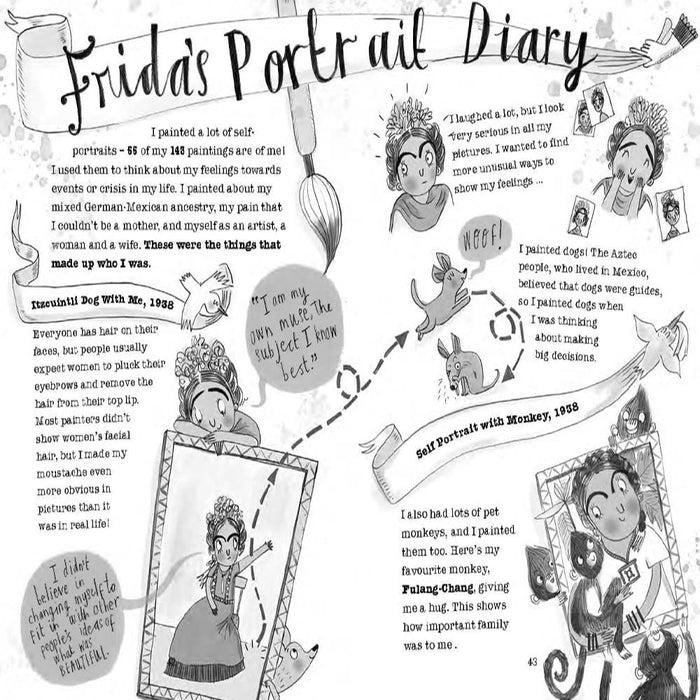 Frida's Portrait Diary
I painted a lot of self-
portraits - 55 of my 143 paintings are of me!
I used them to think about my feelings towards
events or crisis in my life. I painted about my
mixed German-Mexican ancestry, my pain that
I couldn't be a mother, and myself as an artist, a
woman and a wife. These were the things that
made up who I was.
Itzcuintli Dog With Me, 1938
Everyone has hair on their
faces, but people usually
expect women to pluck their
eyebrows and remove the
hair from their top lip.
Most painters didn't
show women's facial
hair, but I made my
moustache even
more obvious in
pictures than it
was in real life!
"I am my
own muse, the
subject I know
best."
I didn't
believe in
changing myself to
fit in with other
people's ideas of
what was
BEAUTIFUL.
I laughed a lot, but I look
very serious in all my
pictures. I wanted to find
more unusual ways to
show my feelings ...
WOOF!
I painted dogs! The Aztec
people, who lived in Mexico,
believed that dogs were guides,
so I painted dogs when
I was thinking
about making
big decisions.
Self Portrait with Monkey, 1938
I also had lots of pet
monkeys, and I painted
them too. Here's my
favourite monkey,
Fulang-Chang, giving
me a hug. This shows
how important family
was to me.
43